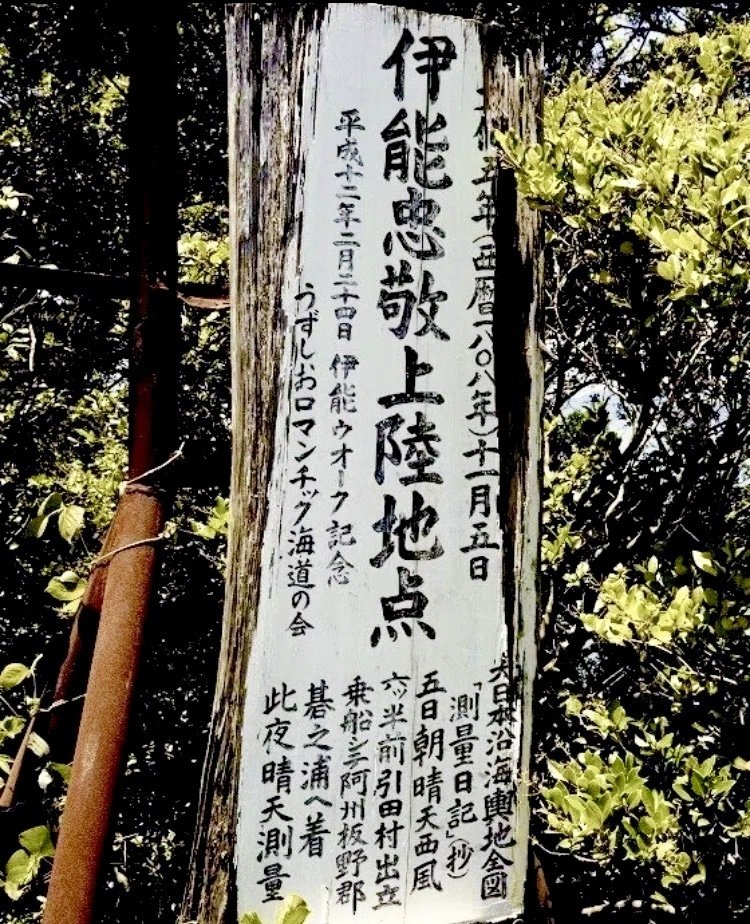 文化五年(西暦一八〇八年)十一月五日
伊能忠敬上陸地点
平成十二年二月二十四日 伊能ウオーク記念
うずしおロマンチック海道の会
大日本沿海輿地全図
「測量日記」(抄)
五日朝晴天西風
六ツ半前引田村出立
乗船シテ阿州板野郡
碁之浦へ着
此夜晴天測量